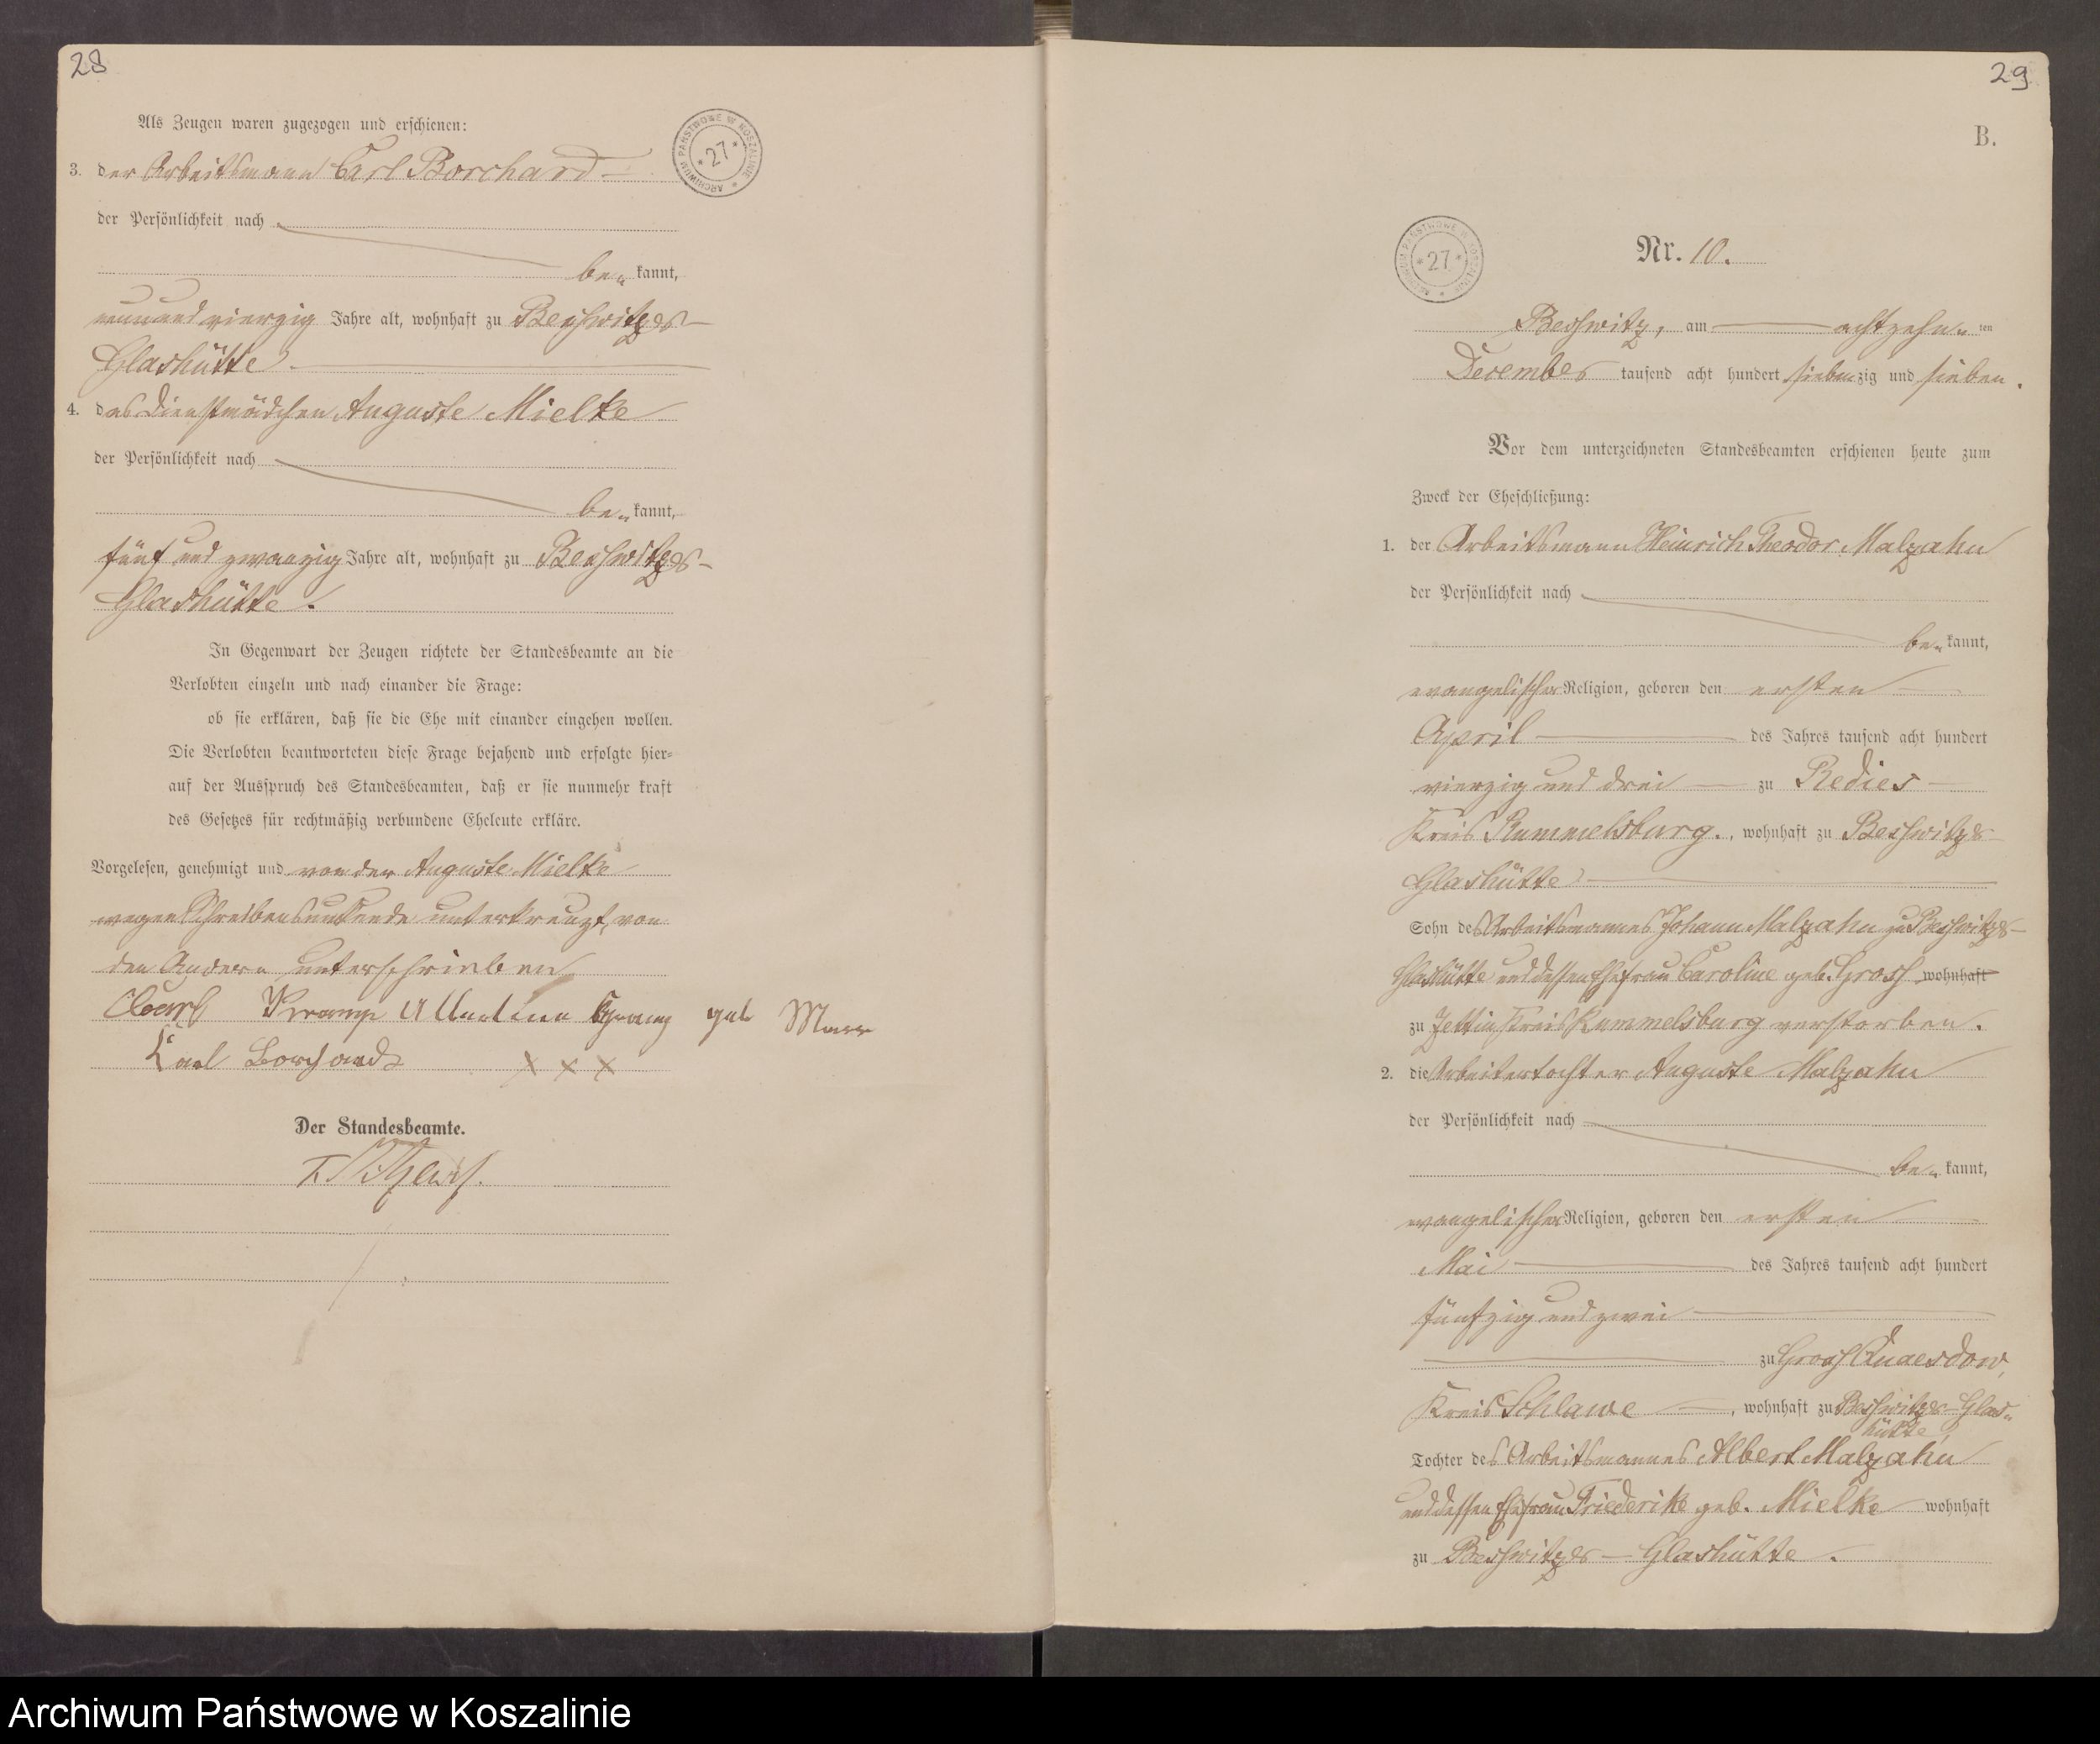 28
Als Zeugen waren zugezogen und erschienen:
ARCHIWUM PAŃSTWOWE W KOSZALINIE * 27 *
3. der Arbeitsmann Carl Borchard
der Persönlichkeit nach
be„ kannt,
neunundvierzig Jahre alt, wohnhaft zu Beßwitzer-
Glashütte
4. das Dienstmädchen Auguste Mielke
der Persönlichkeit nach
be„ kannt,
fünf und zwanzig Jahre alt, wohnhaft zu Beßwitzer-
Glashütte.
In Gegenwart der Zeugen richtete der Standesbeamte an die
Verlobten einzeln und nach einander die Frage:
ob sie erklären, daß sie die Ehe mit einander eingehen wollen.
Die Verlobten beantworteten diese Frage bejahend und erfolgte hier-
auf der Ausspruch des Standesbeamten, daß er sie nunmehr kraft
des Gesetzes für rechtmäßig verbundene Eheleute erkläre.
Vorgelesen, genehmigt und von der Auguste Mielke
wegen Schreibensunkunde unterkreuzt, von
den Andern unterschrieben
Carl Kramp geb Marr
Carl Borchardt X X X
Der Standesbeamte.
29
B.
ARCHIWUM PAŃSTWOWE W KOSZALINIE * 27 *
Nr. 10.
Beßwitz, am achtzehn„ ten
December tausend acht hundert siebenzig und sieben.
Vor dem unterzeichneten Standesbeamten erschienen heute zum
Zweck der Eheschließung:
1. der Arbeitsmann Heinrich Theodor Malzahn
der Persönlichkeit nach
be„ kannt,
evangelischer Religion, geboren den ersten
April des Jahres tausend acht hundert
vierzig und drei zu Redies
Kreis Rummelsburg., wohnhaft zu Beßwitzer
Glashütte
Sohn des Arbeitsmannes Johann Malzahn zu Beßwitzer-
Glashütte und dessen Ehefrau Caroline geb. Groß wohnhaft
zu Zettin Kreis Rummelsburg verstorben.
2. die Arbeitertochter Auguste Malzahn
der Persönlichkeit nach
be„ kannt,
evangelischer Religion, geboren den ersten
Mai des Jahres tausend acht hundert
fünfzig und zwei
zu Groß Quaesdow,
Kreis Schlawe, wohnhaft zu Beßwitzer-Glas„
hütte,
Tochter des Arbeitsmannes Albert Malzahn
und dessen Ehefrau Friederike geb. Mielke wohnhaft
zu Beßwitzer-Glashütte.
Archiwum Państwowe w Koszalinie